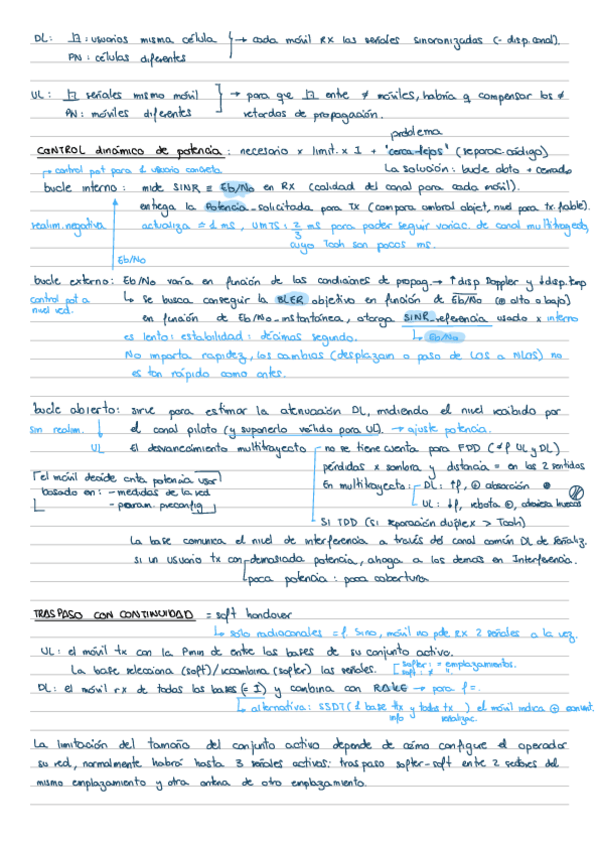 DL: ⊥: usuarios misma célula → cada móvil RX las señales sincronizadas (- disp. canal).
PN: células diferentes
UL: ⊥ señales mismo móvil → para que ⊥ entre ≠ móviles, habría q compensar los ≠
PN: móviles diferentes retardos de propagación.
problema
CONTROL dinámico de potencia: necesario x limit. x I + "cerca-lejos" (reparac. código)
→ control pot para 1 usuario concreto La solución: bucle abto + cerrado
bucle interno: mide SINR ≡ Eb/No en RX (calidad del canal para cada móvil).
entrega la Potencia-solicitada para TX (compara umbral objet, nivel para tx. fiable).
realim. negativa actualiza ≈ 1 ms, UMTS: 2/3 ms para poder seguir variac. de canal multitrayecto,
cuyo Tcoh son pocos ms.
Eb/No
bucle externo: Eb/No varía en función de las condiciones de propag. → ↑disp Doppler y ↓disp. tmp
control pot a ↳ Se busca conseguir la BLER objetivo en función de Eb/No (⊕ alto o bajo)
nivel red. en función de Eb/No-instantánea, otorga SINR-referencia usado x interno
es lento: estabilidad: décimas segundo. ↳ Eb/No
No importa rapidez, los cambios (desplazam o paso de LOS a NLOS) no
es tan rápido como antes.
bucle abierto: sirve para estimar la atenuación DL, midiendo el nivel recibido por
sin realim. el canal piloto (y suponerlo válido para UL). → ajuste potencia.
UL El desvanecimiento multitrayecto no se tiene cuenta para FDD (≠f UL y DL)
pérdidas x sombra y distancia = en los 2 sentidos
el móvil decide cnta potencia usar En multitrayecto: DL: ↑f, ⊕ absorción
basado en: - medidas de la red UL: ↓f, rebota ⊕, atraviesa huecos
- param. preconfig SI TDD (si separación duplex > Tcoh)
La base comunica el nivel de interferencia a través del canal común DL de señaliz.
si un usuario tx con demasiada potencia, ahoga a los demas en Interferencia.
poca potencia: poca cobertura
TRASPASO CON CONTINUIDAD = soft handover
↳ solo radiocanales = f. Sino, móvil no pde RX 2 señales a la vez.
UL: el móvil tx con la Pmin de entre las bases de su conjunto activo.
La base selecciona (soft)/recombina (softer) las señales. [softer: = emplazamientos. soft: ≠ "
DL: el móvil rx de todas las bases (= I) y combina con RAKE → para f =.
↳ alternativa: SSDT (1 base tx info y todas tx señalizac.) el móvil indica ⊕
La limitación del tamaño del conjunto activo depende de cómo configure el operador
su red, normalmente habrá hasta 3 señales activas: traspaso softer-soft entre 2 sectores del
mismo emplazamiento y otra antena de otro emplazamiento.